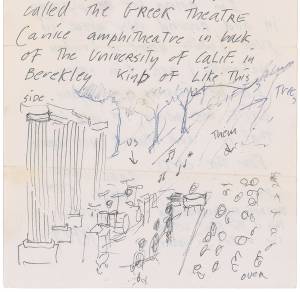 called the GREEK THEATRE
(a nice amphitheatre in back
OF THE University of Calif. in
Berekley kind of Like This
side.
CLIFFS
TREES
us
Them
over